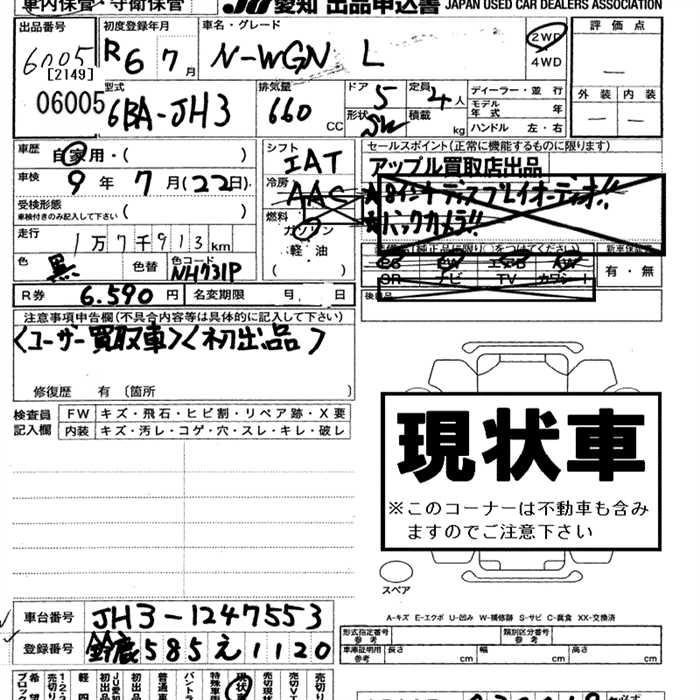 車内保管・守衛保管
JU愛知 出品申込書 JAPAN USED CAR DEALERS ASSOCIATION
出品番号
6005
[2149]
06005
初度登録年月
R6年7月
車名・グレード
N-WGN L
2WD
4WD
評価点
型式
6BA-JH3
排気量
660 CC
ドア 5
形状 5W
定員 4人
積載 kg
ディーラー・並行
モデル年式 年
ハンドル 左・右
外装 内装
車歴 自家用・( )
車検 9年7月(22日)
受検形態
車検付きのみ記入して下さい ( )
走行 1万7千913km
色 黒 色替 色コード NH731P
シフト
IAT
冷房
AAC
燃料
ガソリン
・軽・油
( )
セールスポイント(正常に機能するものに限ります)
アップル買取店出品
★8インチディスプレイオーディオ!!
★バックカメラ!!
(純正品に限り○をつけてください)
SR ナビ TV カワシート
新車保証書
有・無
後日品
R券 6.590円 名変期限 月 日
注意事項申告欄(不具合内容等は具体的に記入して下さい)
〈ユーザー買取車〉〈初出品〉
修復歴 有 〔箇所
検査員記入欄
FW キズ・飛石・ヒビ割・リペア跡・X要
内装 キズ・汚レ・コゲ・穴・スレ・キレ・破レ
現状車
※このコーナーは不動車も含みますのでご注意下さい
スペア
A-キズ E-エクボ U-凹み W-補修跡 S-サビ C-腐食 XX-交換済
車台番号 JH3-1247553
登録番号 鈴鹿 585 え 1120
形式指定番号 参考
類別区分番号 参考
車庫証明用 参考 長さ cm 幅 cm 高 cm
希望ブロック
軽四
JU愛知初出品
初出品
普通車
特殊車両
現状車
売切現状
売切り